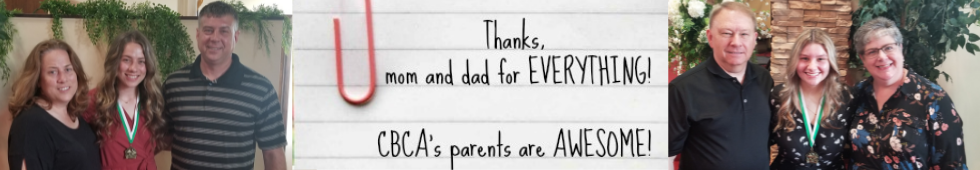 Thanks,
mom and dad for EVERYTHING!
CBCA's parents are AWESOME!